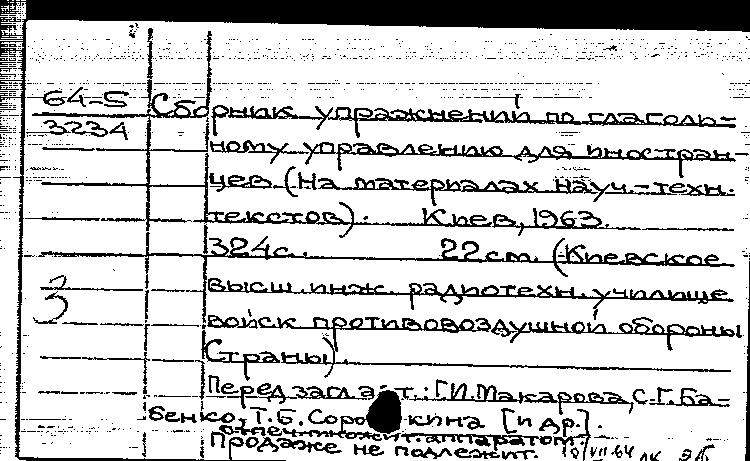 64-5 Сборник упражнений по глаголь-
3234
ному управлению для иностран-
цев (На материалах науч.-техн.
текстов). Киев, 1963.
324с. 22см. (Киевское
высш. инж. радиотехн. училище
войск противовоздушной обороны
Страны).
Перед загл. авт.: Г.И. Макарова, С.Г. Ба-
бенко, Т.Б. [и др.].
отпеч. множит. аппаратом.
Продаже не подлежит.